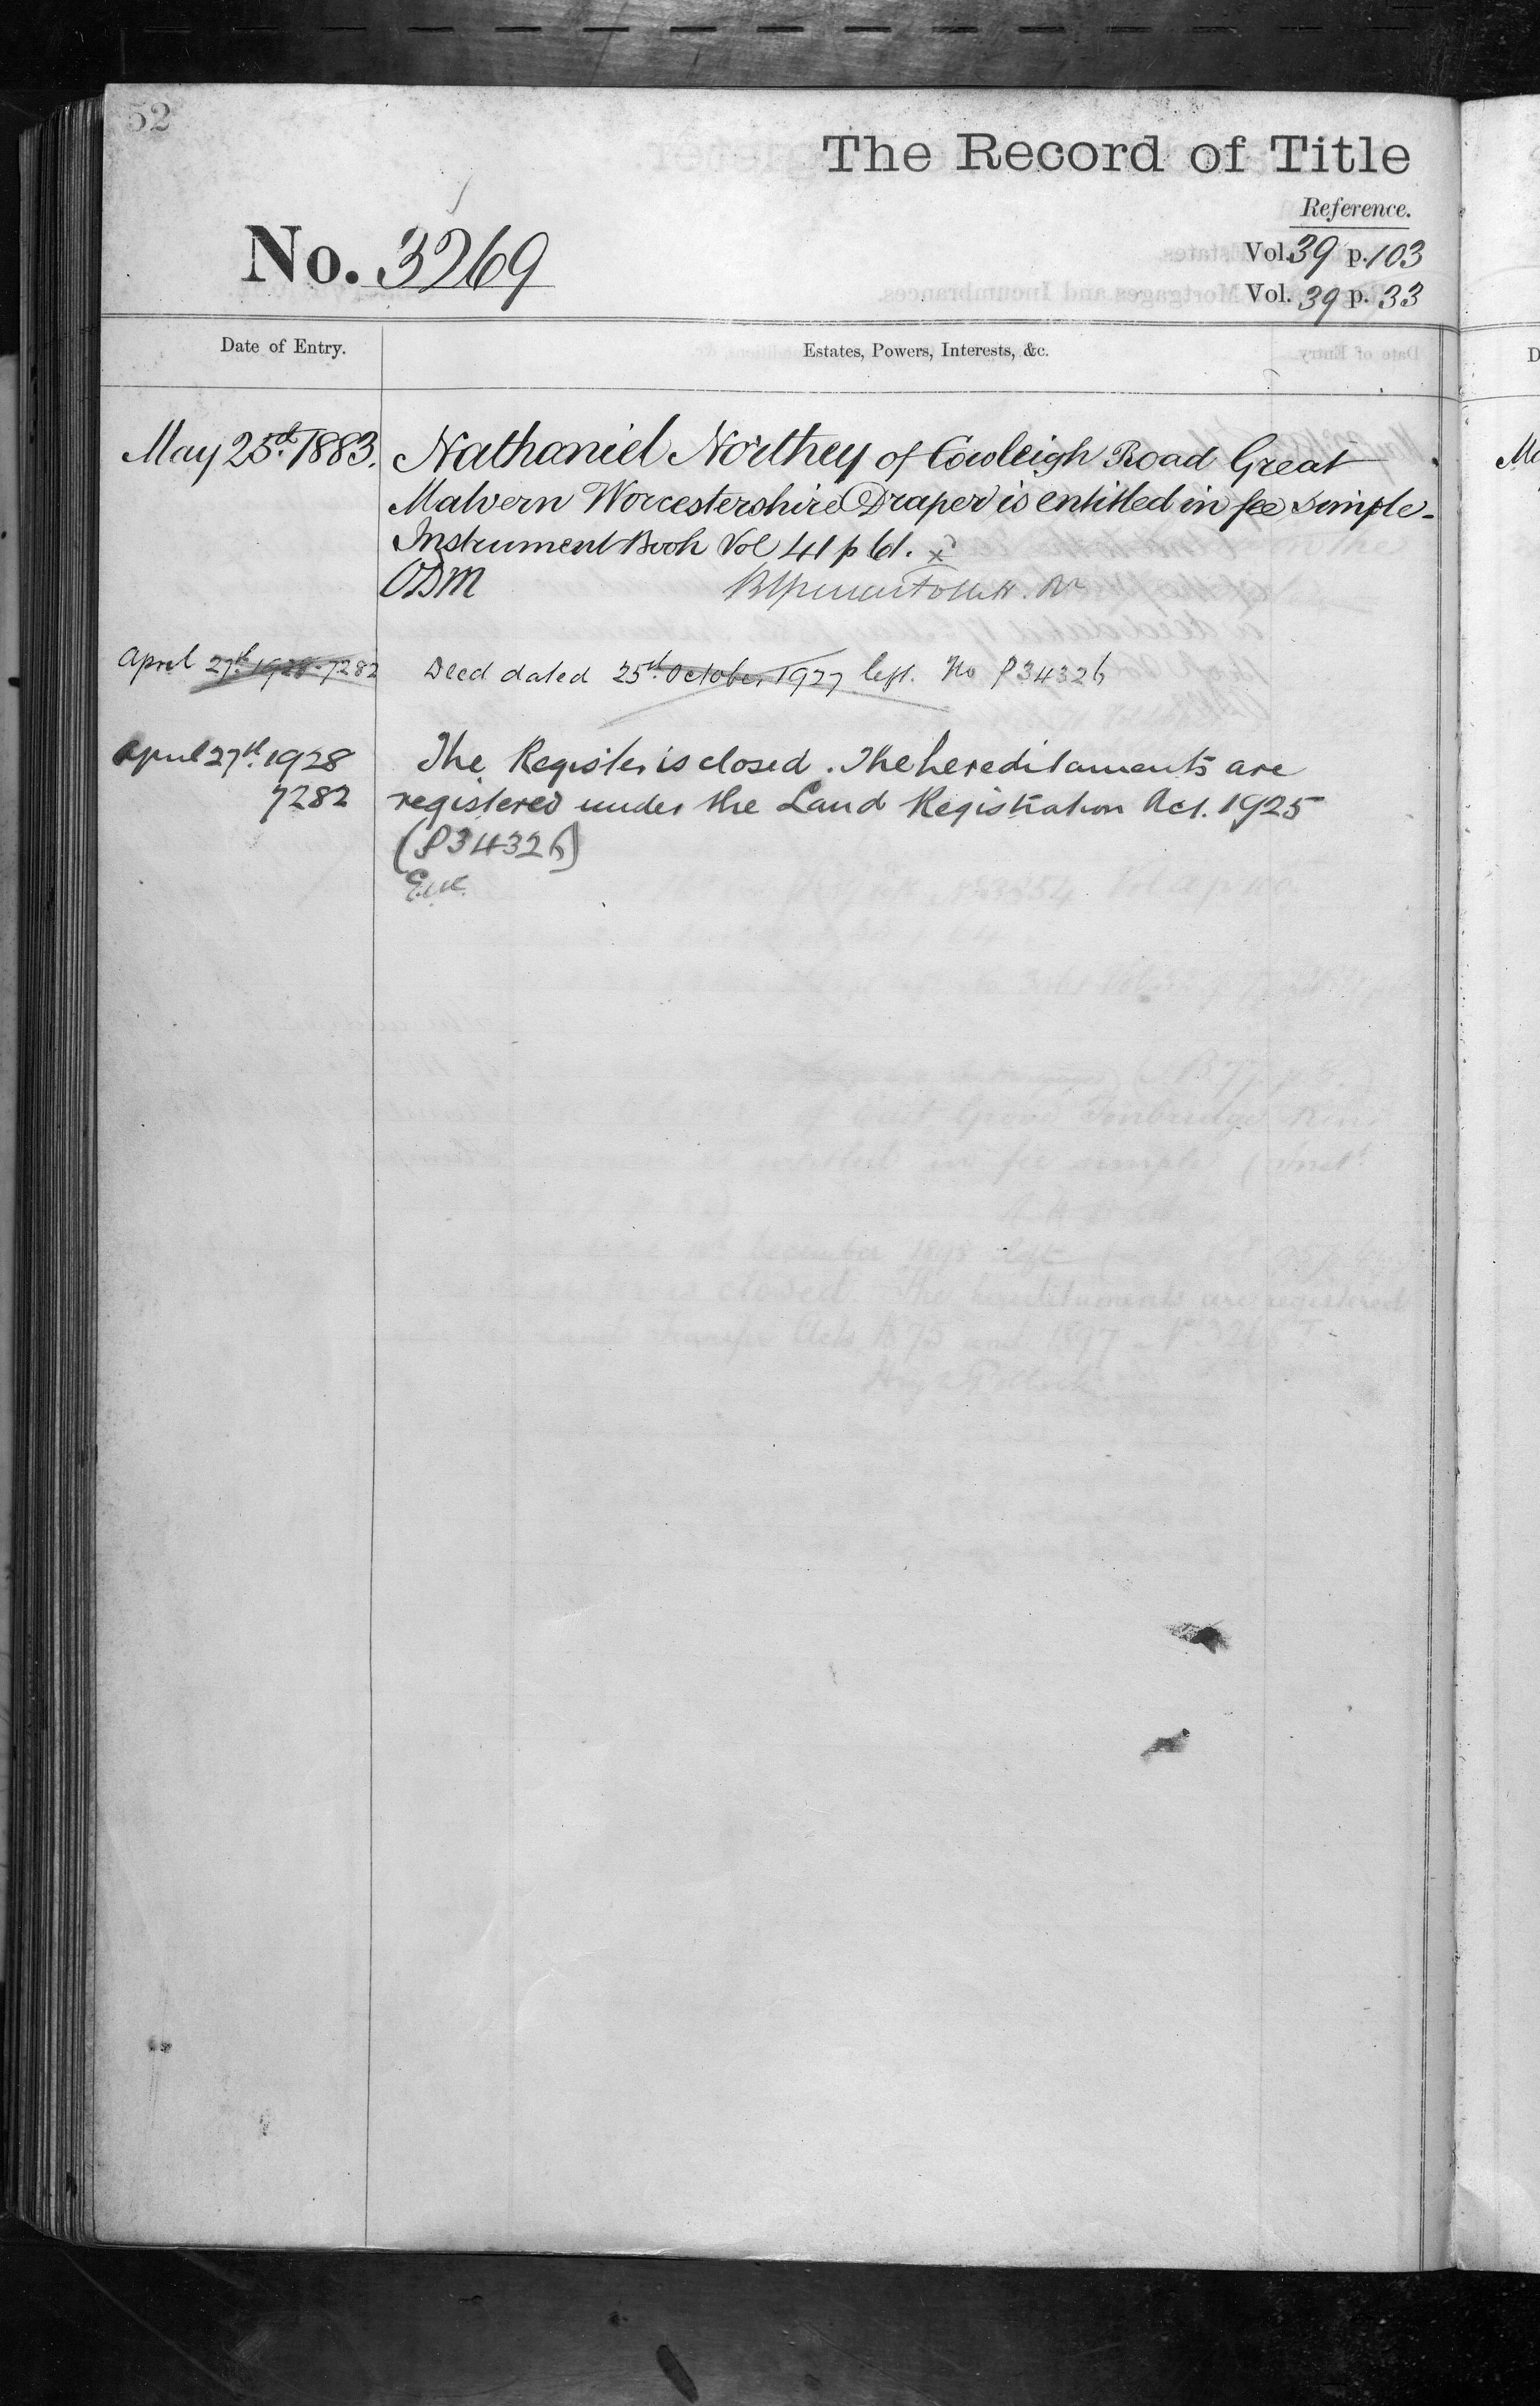 52
The Record of Title
Reference.
No. 3269
Vol. 39 p. 103
Vol. 39 p. 33
Date of Entry.
Estates, Powers, Interests, &c.
May 25th 1883. Nathaniel Northey of Cowleigh Road Great
Malvern Worcestershire Draper is entitled in fee simple-
Instrument Book Vol 41 p 61. x
ODM
April 27th 1928 - 7282 Deed dated 25th October 1927 left. No P34326
April 27th 1928 The Register is closed. The hereditaments are
7282 registered under the Land Registration Act. 1925
(P34326)